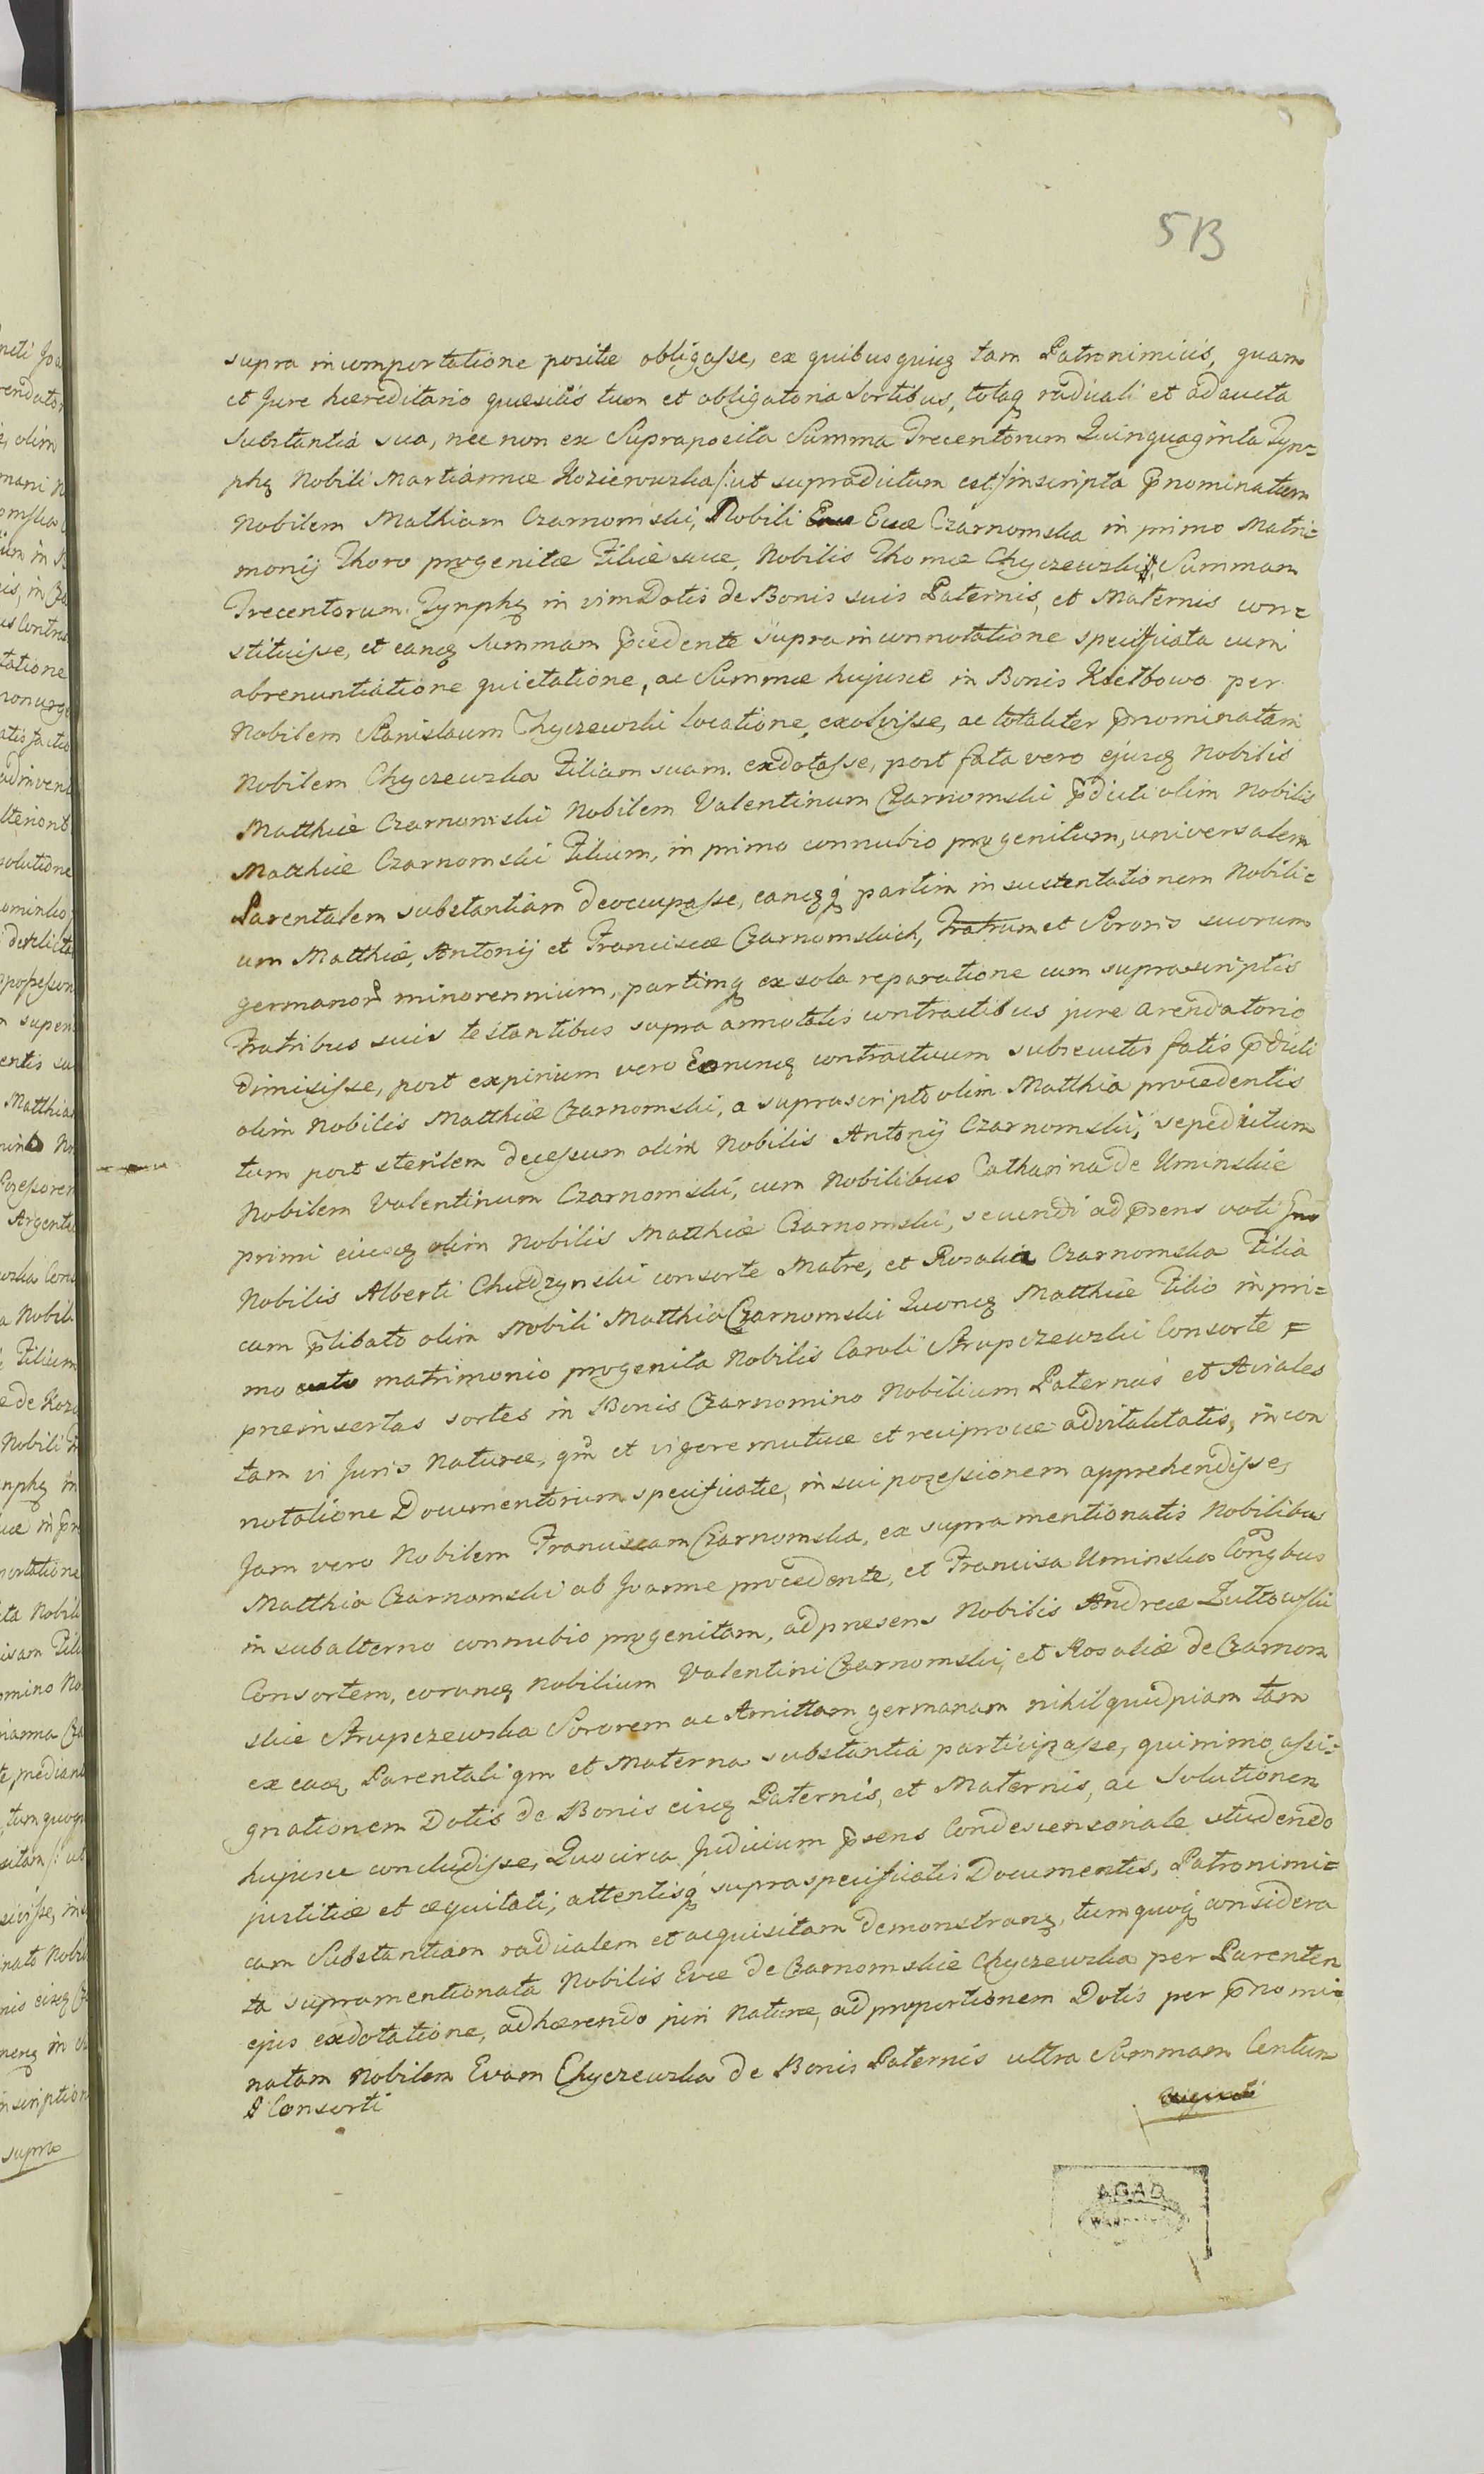 513
supra in comportatione positæ obligasse, ex quibusquiq tam Patronimicis, quam
et Jure hæreditario quæsitis tum et obligatoria Sortibus, totaq radicali et adaucta
Substantiâ sua, nec non ex Supraposita Summa Trecentorum Quinquaginta Tyn=
phq Nobili Martiannæ Kozierowska /: ut supradictum est :/ inscripta p̄nominatum
Nobilem Mathiam Czarnomski, Nobili Evæ Czarnomska in primo Matri=
monij Thoro progenitæ Filiæ suæ, Nobilis Thomæ Chyczewski, Summam
Trecentorum Tynphq in vim Dotis de Bonis suis Paternis, et Maternis con=
stituisse, et eanq Summam p̄cedente supra in connotatione specificata cum
abrenuntiatione quietatione, ac Summæ hujusce in Bonis Kietbowo per
Nobilem Stanislaum Chyczewski locatione, exolvisse, ac totaliter p̄nominatam
Nobilem Chyczewska Filiam suam exdotasse, post fata vero ejusq Nobilis
Matthiæ Czarnomski Nobilem Valentinum Czarnomski p̄dicti olim Nobilis
Matthiæ Czarnomski Filium, in primo connubio progenitum, universalem
Parentalem substantiam deoccupasse, eanqq partim in sustentationem Nobili=
um Matthiæ, Antonij et Franciscæ Czarnomskich, Fratrum et Sororis suorum
germanor minorennium, partimq ex sola reparatione cum suprascriptis
Fratribus suis testantibus supra annotatis contractibus jure arendatorio
dimisisse, post expirium vero Eorumq contractuum subsecutis fatis p̄dicti
olim Nobilis Matthiæ Czarnomski, a suprascripto olim Matthia procedentis
tum post sterilem decessum olim Nobilis Antonij Czarnomski, sepedictum
Nobilem Valentinum Czarnomski, cum Nobilibus Catharina de Uminskie
primi ejusq olim Nobilis Matthiæ Czarnomski, secundi ad p̄sens voti
Nobilis Alberti Chudzynski consorte Matre, et Rosalia Czarnomska Filia
cum p̄libato olim Nobili Matthia Czarnomski Quonq Matthiæ Filio in pri=
mo matrimonio progenita Nobilis Caroli Strupczewski Consorte =
preinsertas sortes in Bonis Czarnomino Nobilium Paternas et Aviales
tam vi Juris Naturæ, qm et vigore mutuæ et reciprocæ advitalitatis, in con
notatione Documentorum specificatæ, in sui pozessionem apprehendisse,
Jam vero Nobilem Franciscam Czarnomska, ex supra mentionatis Nobilibus
Matthia Czarnomski ab Joanne procedente, et Francisca Uminska Congbus
in subalterno connubio progenitam, ad præsens Nobilis Andreæ Zuttowski
Consortem, eorunq Nobilium Valentini Czarnomski, et Rosaliæ de Czarnom
skie Strupczewska Sororem ac Amittam germanam nihil quidpiam tam
ex eaq Parentali qm et Materna substantiâ participasse, quinimo assi=
gnationem Dotis de Bonis eiusq Paternis, et Maternis, ac Solutionem
hujusce concludisse, Quocirca Judicium p̄sens Condescensoriale studendo
justitiæ et æquitati, attentisq supraspecificatis Documentis, Patronimi=
cam Substantiam radicalem et acquisitam demonstranq, tum quoq considera
ta supramentionata Nobilis Evæ de Czarnomskie Chyczewska per Parentem
ejus exdotatione, adhærendo juri Naturæ, ad proportionem Dotis per p̄nomi=
natam Nobilem Evam Chyczewska de Bonis Paternis ultra Summam Centum
Consorti
AGAD